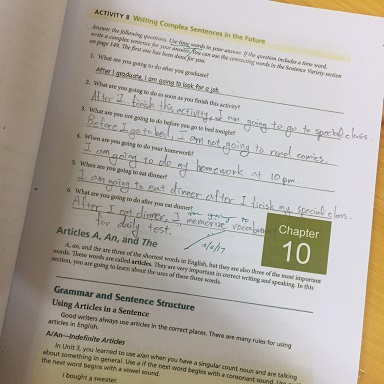 ACTIVITY 8 Writing Complex Sentences in the Future
Answer the following questions. Use time words in your answer. If the question includes a time word,
write a complex sentence for your answer. You can use the connecting words in the Sentence Variety section
on page 149. The first one has been done for you.
1. What are you going to do after you graduate?
After I graduate, I am going to look for a job.
2. What are you going to do as soon as you finish this activity?
After I finish this activity, I am going to go to special class.
3. What are you not going to do before you go to bed tonight?
Before I go to bed, I am not going to read comics.
4. When are you going to do your homework?
I am going to do my homework at 10 pm.
5. When are you going to eat dinner?
I am going to eat dinner after I finish my special class.
6. What are you going to do after you eat dinner?
am going to
After I eat dinner, I memorize vocabulary
for daily test.
Chapter
10
Articles A, An, and The
A, an, and the are three of the shortest words in English, but they are also three of the most important
words. These words are called articles. They are very important in correct writing and speaking. In this
section, you are going to learn about the uses of these three words.
Grammar and Sentence Structure
Using Articles in a Sentence
Good writers always use articles in the correct places. There are many rules for using
articles in English.
A/An—Indefinite Articles
In Unit 3, you learned to use a/an when you have a singular count noun and are talking
about something in general. Use a if the next word begins with a consonant sound. Use
the next word begins with a vowel sound.
I bought a sweater.